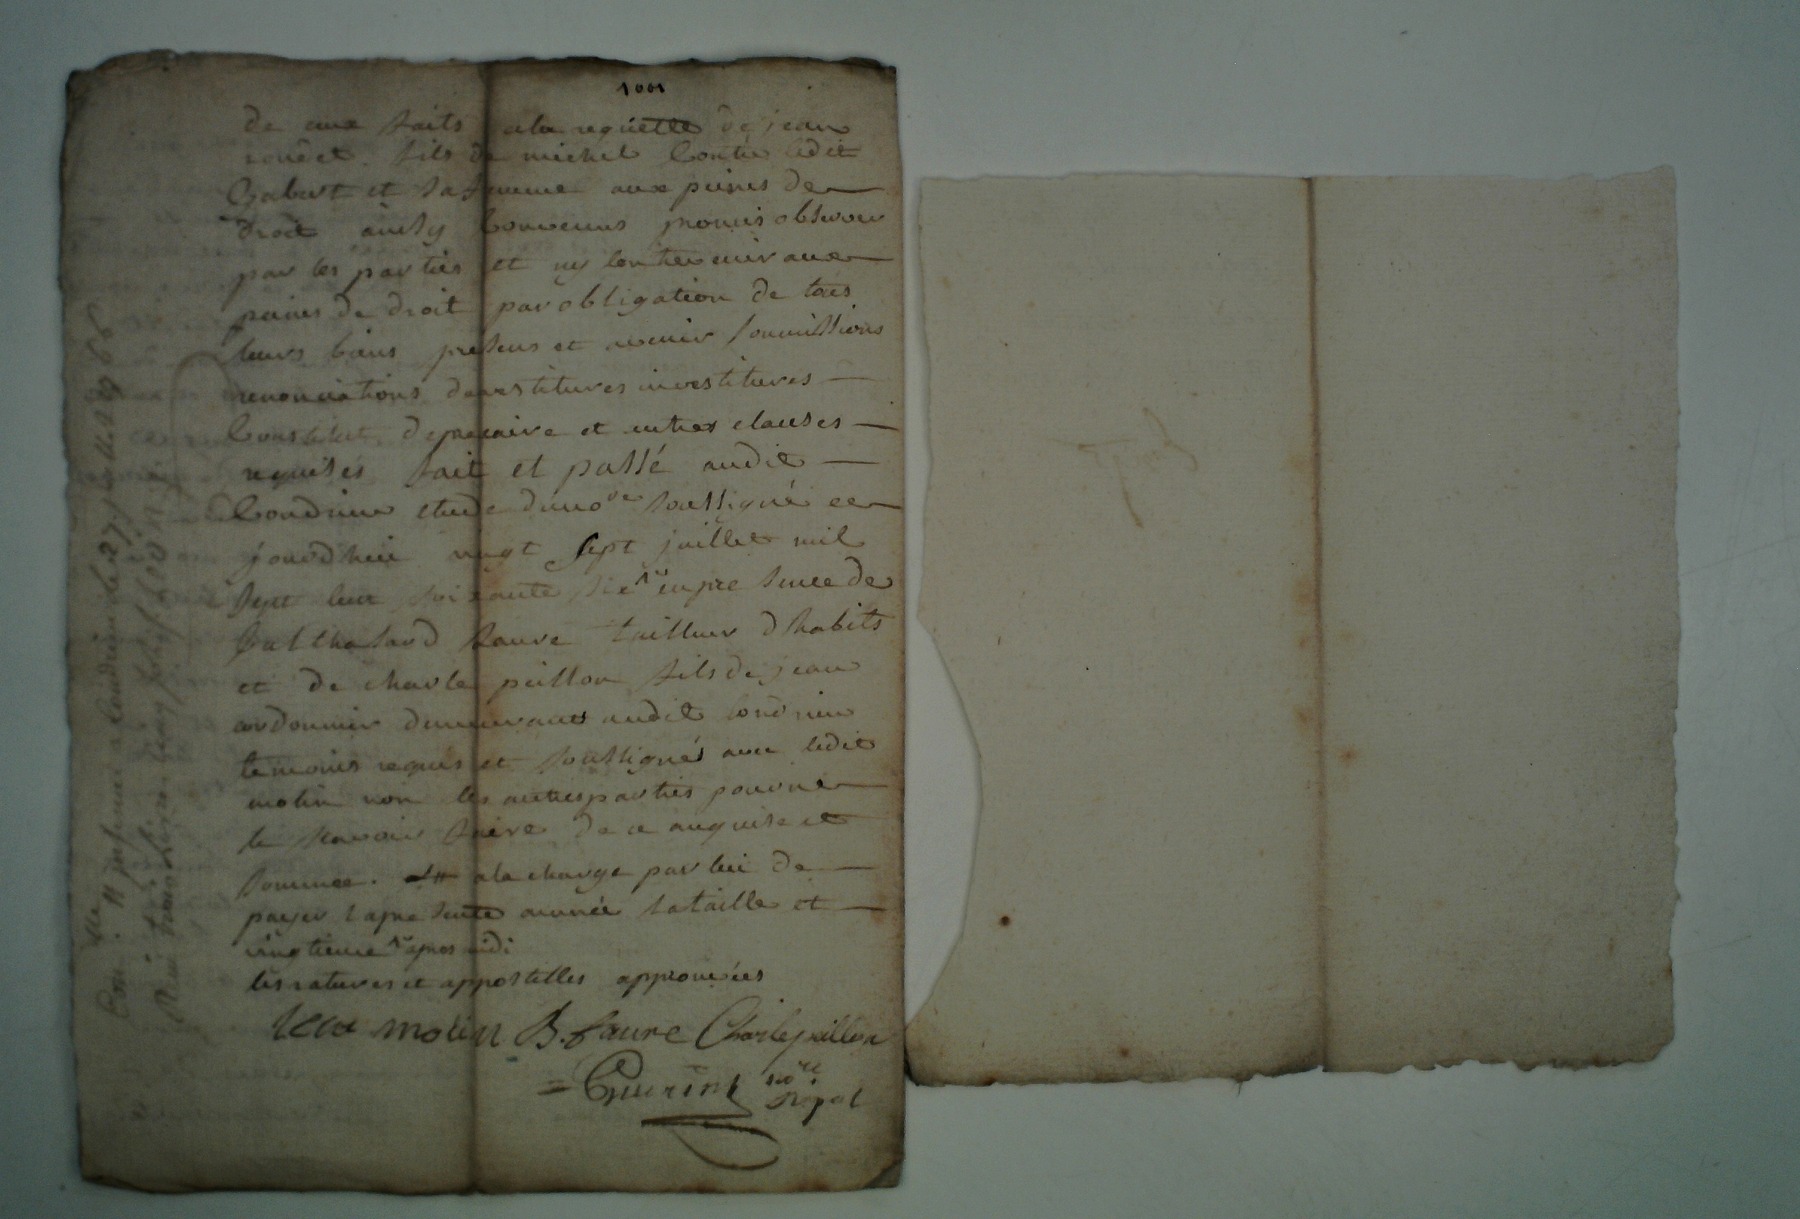 1001
de aux faits a la requette de jean
fils de michel Contre ledit
Gabert et sa femme aux peines de
droit ainsy Convenus promis observer
par les parties et ny Contrevenir aux
peines de droit par obligation de tous
leurs biens presens et avenir soumissions
renonciations devestitures investitures
Constitut de precaire et autres clauses
requises fait et passé audit
Condrieu etude du no.re soussigné ce
jourdhui vingt sept juillet mil
sept cent soixante six en presence de
Balthasard faure tailleur d habits
et de charle peillon fils de jean
cordonnier demeurants audit Condrieu
temoins requis et soussignés avec ledit
molin non les autres parties pour ne
le scavoir faire de ce anquis et
sommés. a la charge par lui de
payer la presente année la taille et
vingtieme apres midi
les ratures et appostilles approuvées
molin B. faure Charle peillon
= Guerin no.re
Con. a Condrieu le 27 juillet 1766